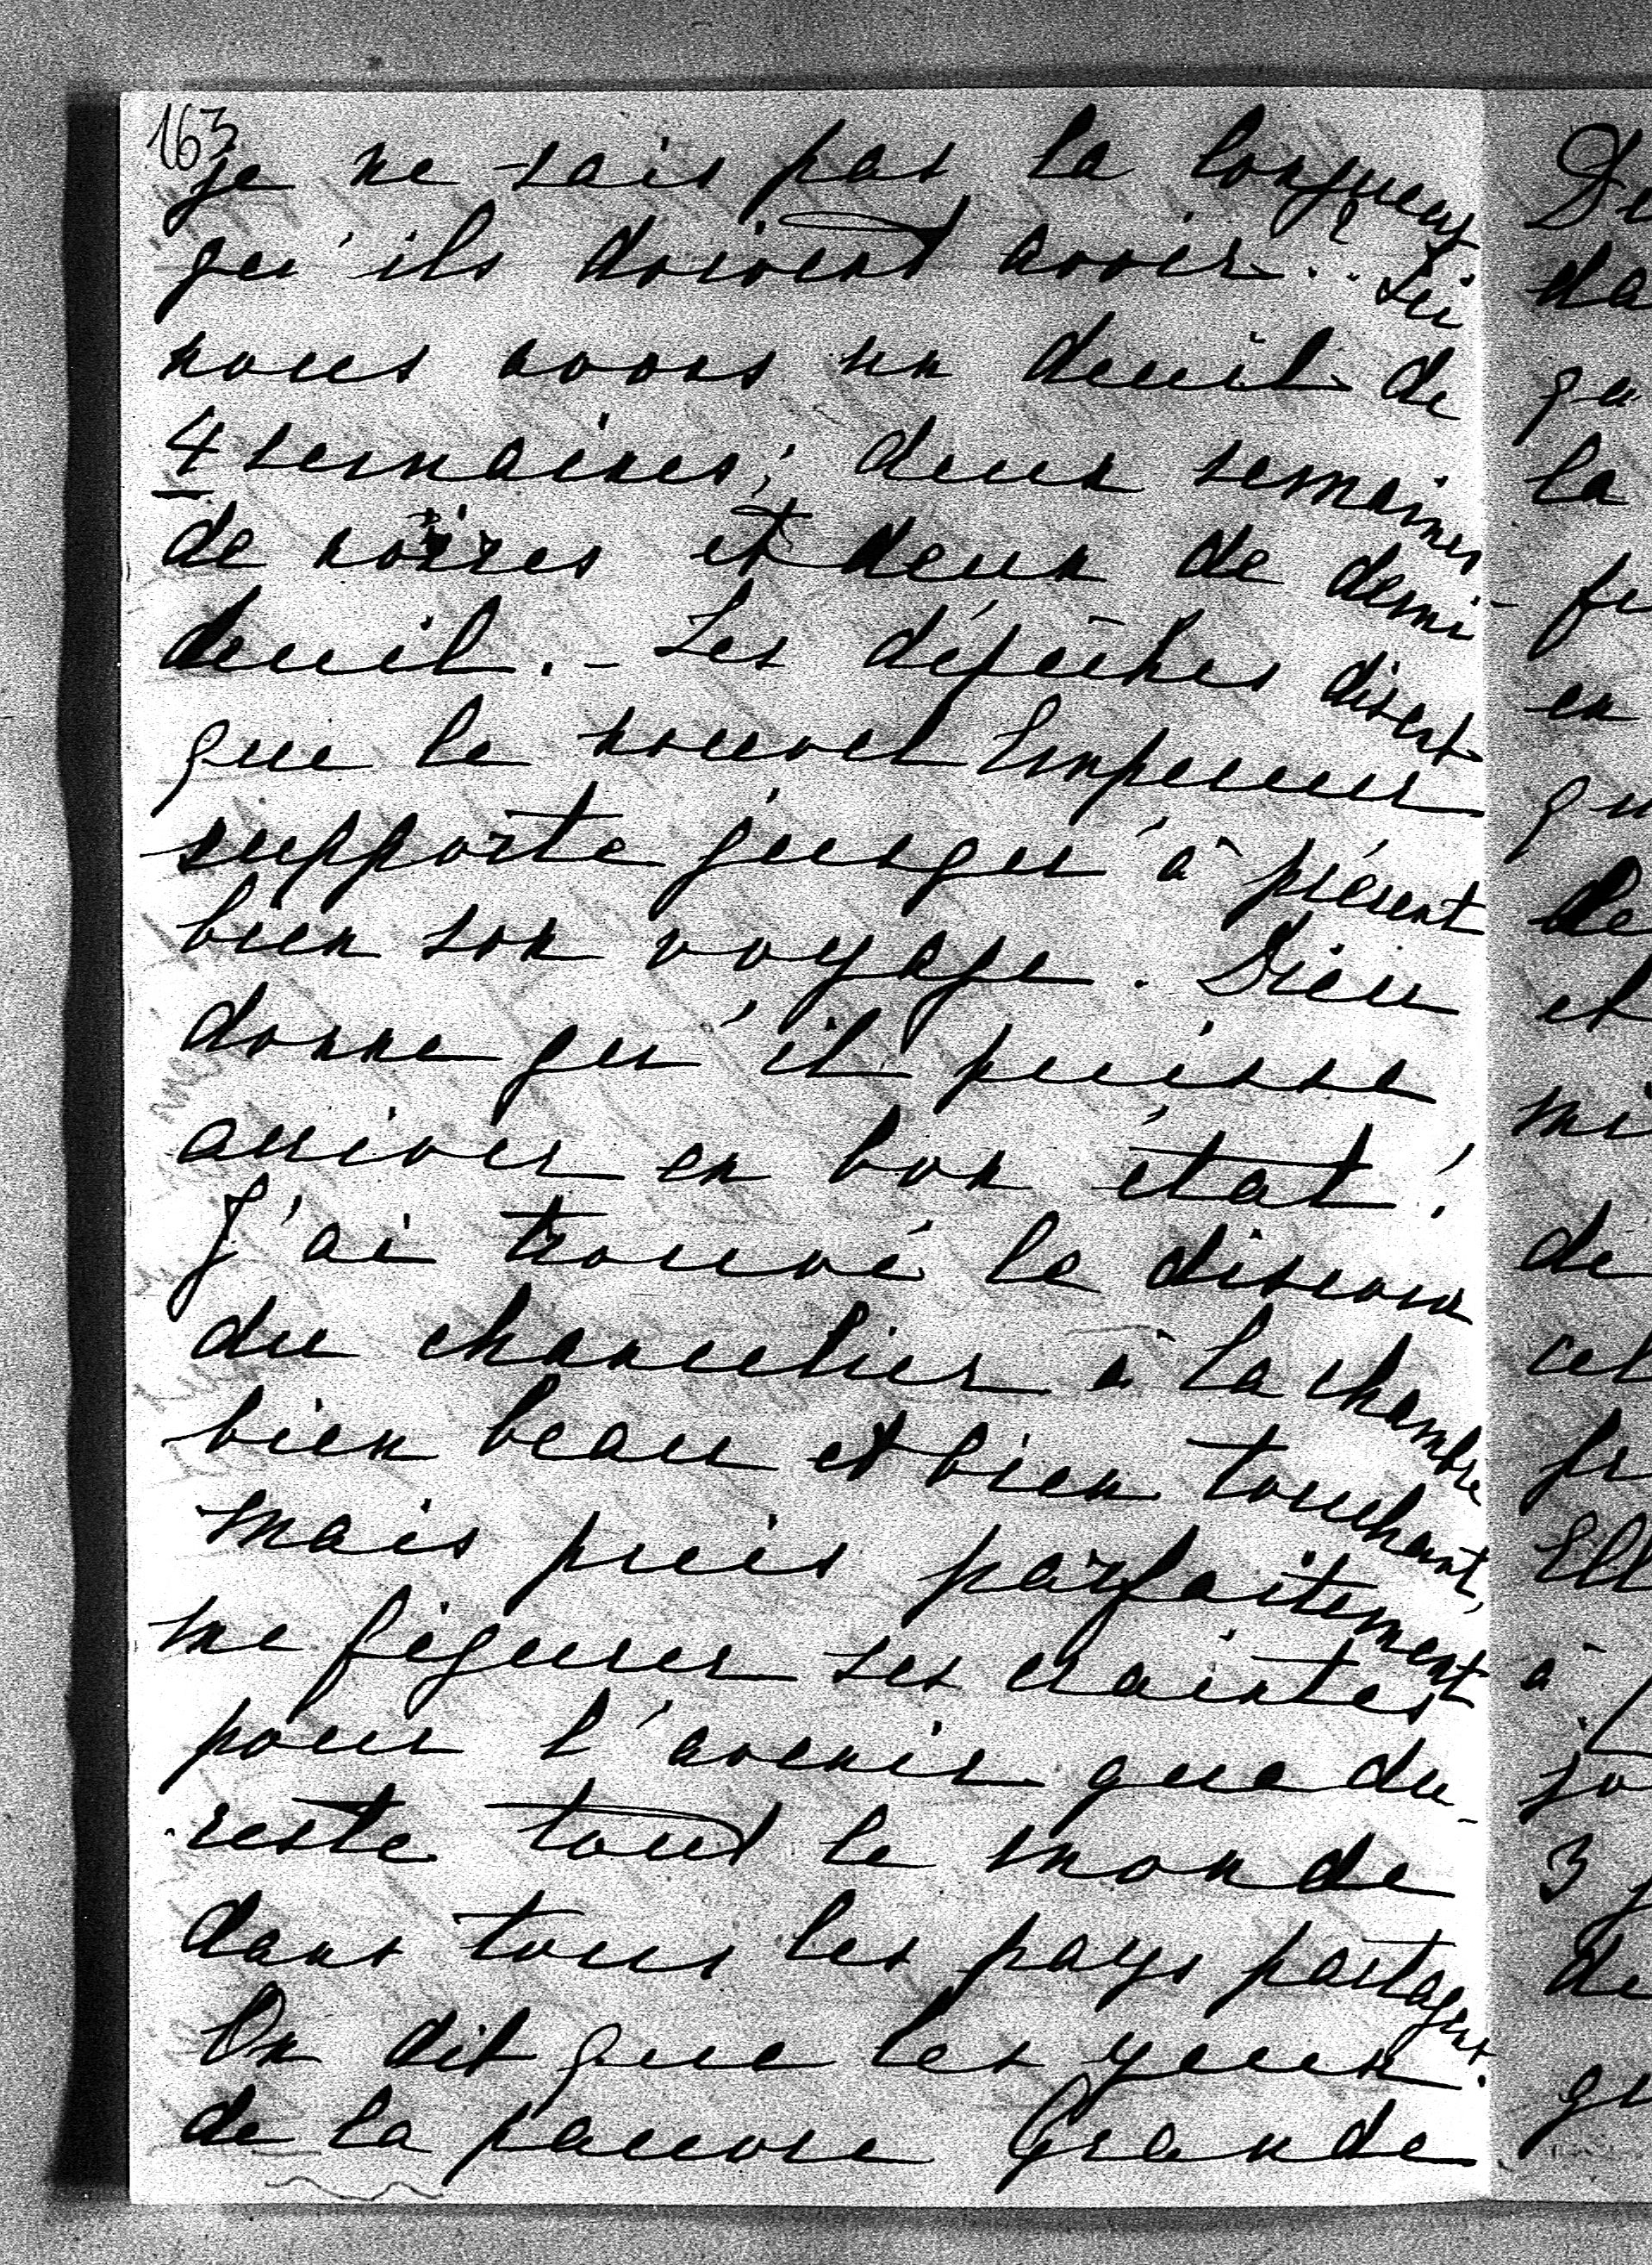 163
je ne sais pas la longueur
qu'ils doivent avoir. Ici
nous avons un deuil de
4 semaines; deux semaines
de noires et deux de demi-
deuil. - Les dépêches disent
que le nouvel Empereur
supporte jusqu'à présent
bien son voyage. Dieu
donne qu'il puisse
arriver en bon état!
J'ai trouvé le discours
du chancelier à la chambre
bien beau et bien touchant,
mais puis parfaitement
me figurer ses craintes
pour l'avenir que du-
reste tout le monde
dans tous les pays partagent.
On dit que les yeux
de la pauvre Grande